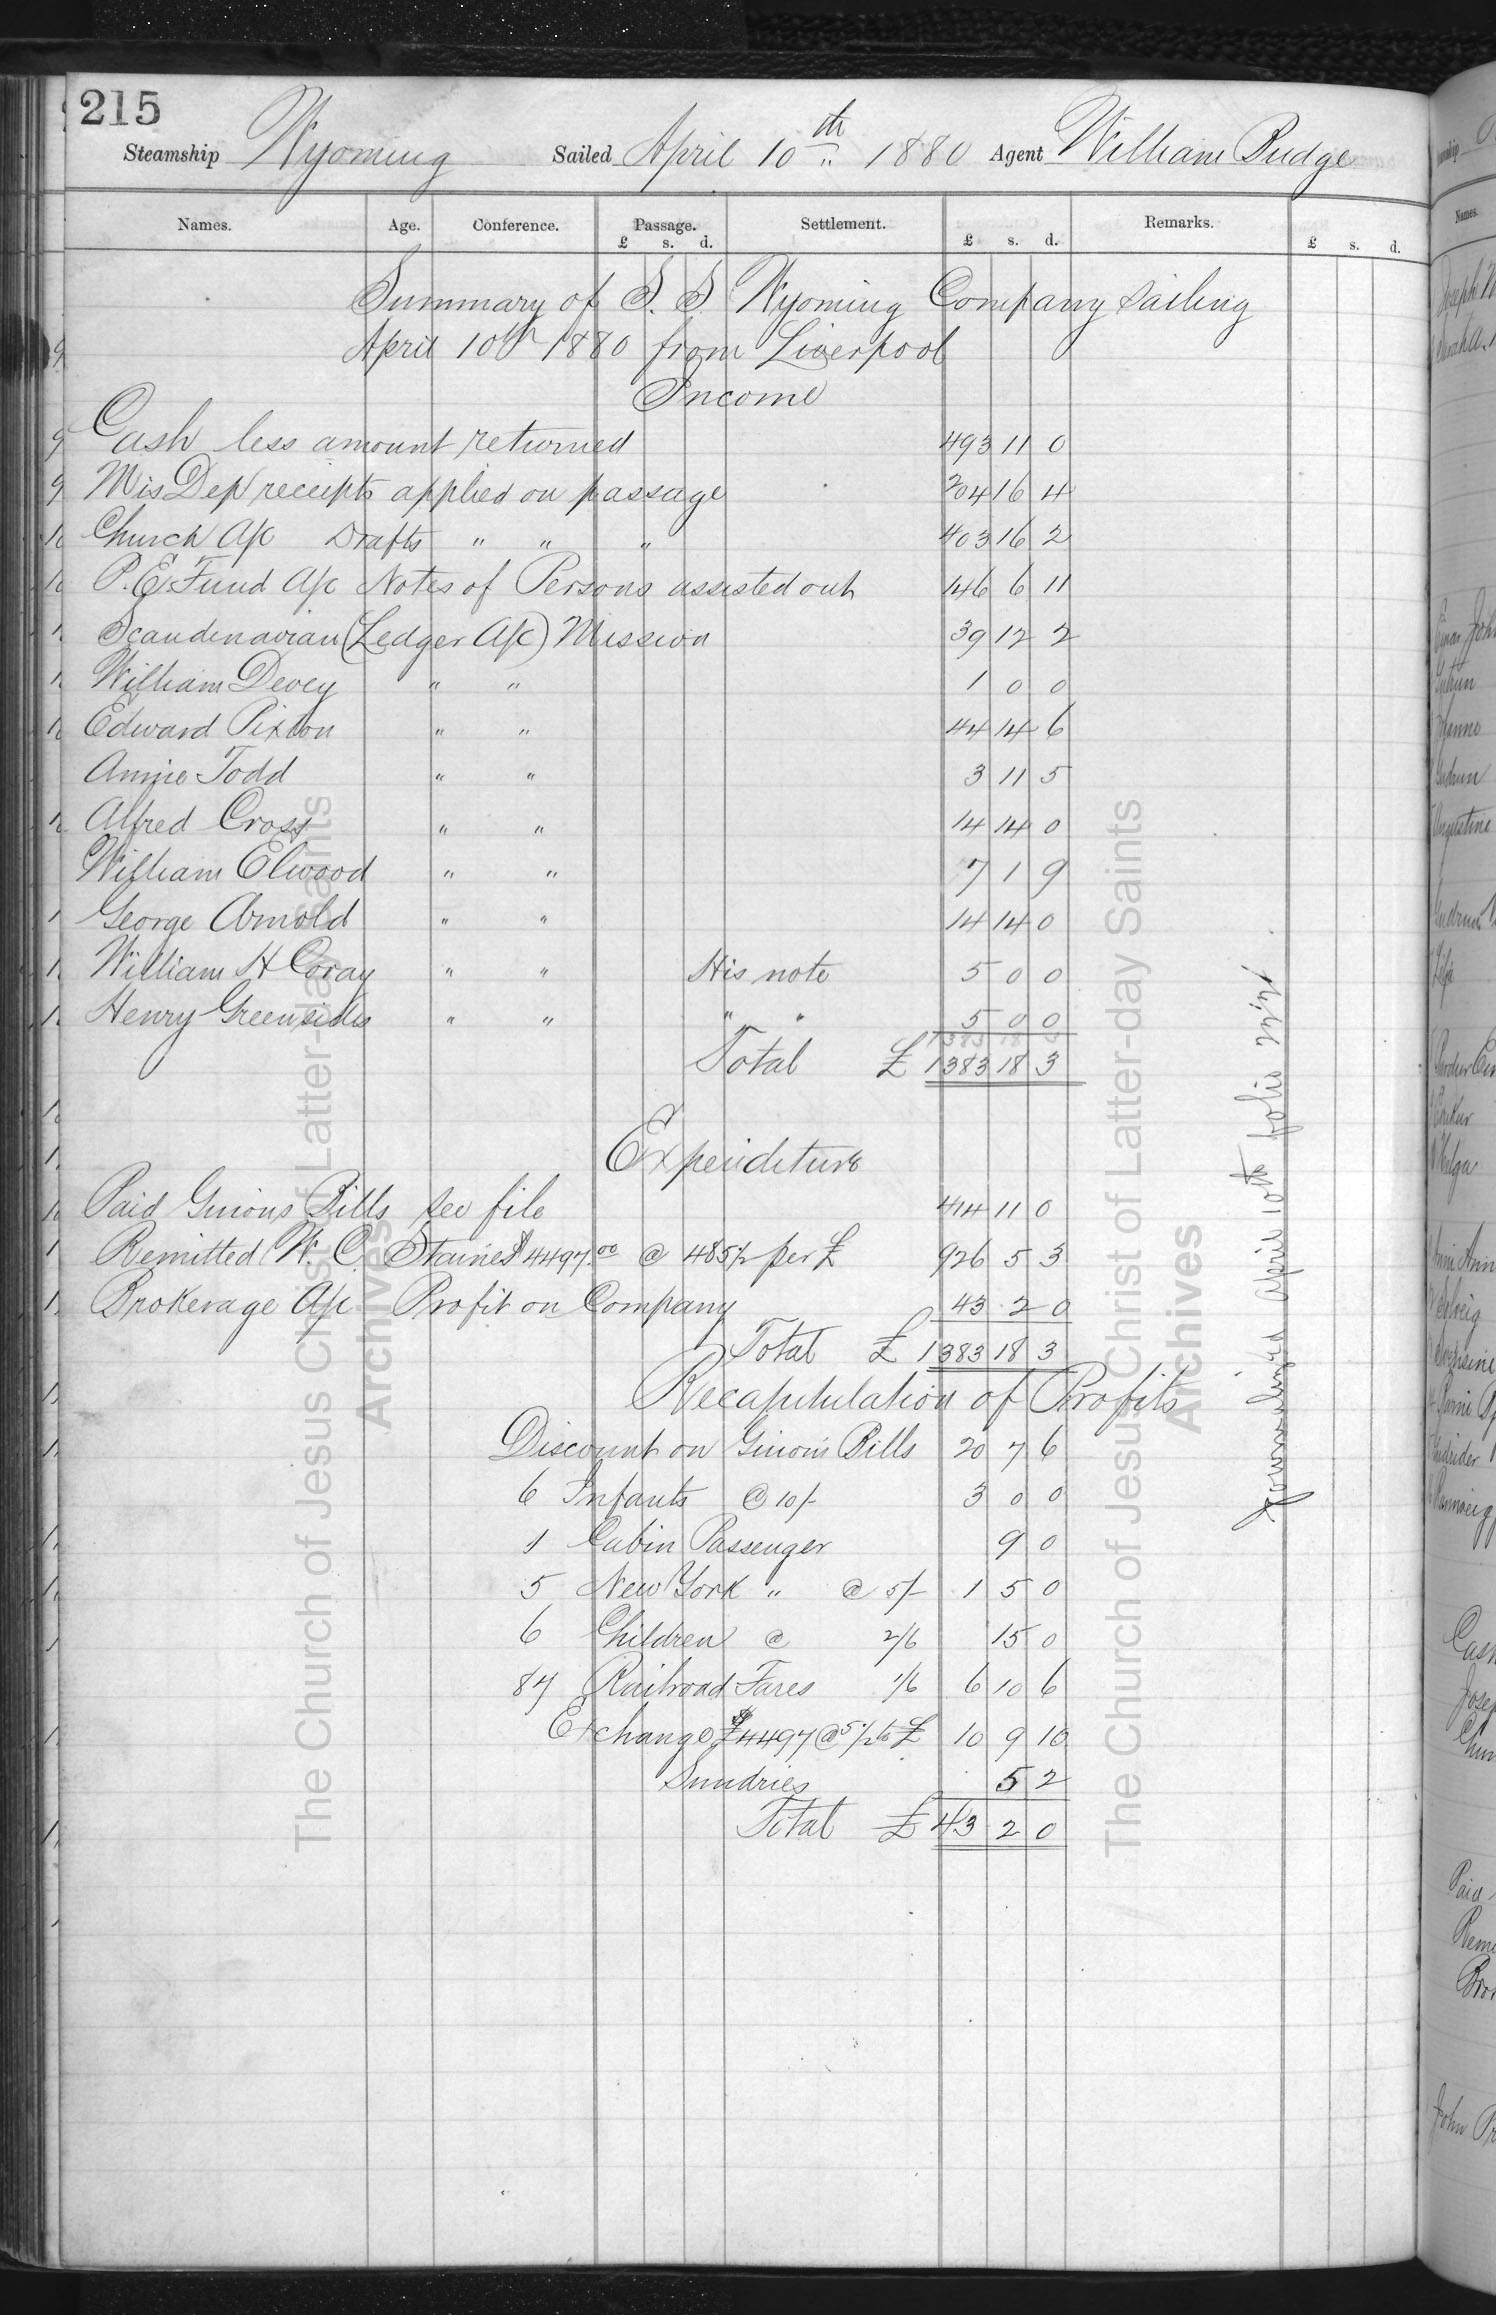 215
Steamship Wyoming Sailed April 10th 1880 Agent William Budge
Names. Age. Conference. Passage. Settlement. £ s. d. Remarks. £ s. d.
£ s. d.
Summary of S. S. Wyoming Company sailing
April 10th 1880 from Liverpool
Income
Cash less amount returned 493 11 0
Mis Dep receipts applied on passage 204 16 4
Church A/c Drafts " " " 403 16 2
P. E. Fund A/c Notes of Persons assisted out 146 6 11
Scandinavian (Ledger A/c) Mission 39 12 2
William Dovey " " 1 0 0
Edward Pixton " " 44 14 6
Annie Todd " " 3 11 5
Alfred Cross " " 14 14 0
William Elwood " " 7 1 9
George Arnold " " 14 14 0
William H Coray " " His note 5 0 0
Henry Greensides " " " " 5 0 0
Total £ 1383 18 3
Expenditure
Paid Guions Bills see file 414 11 0
Remitted W. C. Staines $4497.00 @ 485½ per £ 926 5 3
Brokerage A/c Profit on Company 43 2 0
Total £ 1383 18 3
Recapitulation of Profits
Discount on Guion's Bills 20 7 6
6 Infants @ 10/- 3 0 0
1 Cabin Passenger 9 0
5 New York " @ 5/- 1 5 0
6 Children @ 2/6 15 0
87 Railroad Fares 1/6 6 10 6
Exchange $4497 @ 5½ to £ 10 9 10
Sundries 5 2
Total £ 43 2 0
Journalized April 10th folio
The Church of Jesus Christ of Latter-day Saints
Archives
The Church of Jesus Christ of Latter-day Saints
Archives